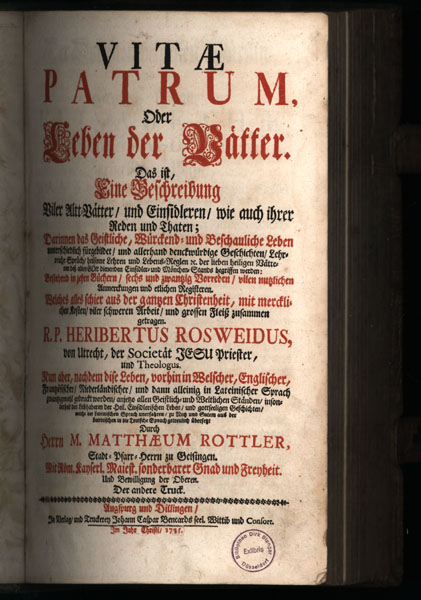 VITÆ
PATRUM,
Oder
Leben der Vätter.
Das ist,
Eine Beschreibung
Viler Alt-Vätter/ und Einsidleren/ wie auch ihrer
Reden und Thaten;
Darinnen das Geistliche, Würckend- und Beschauliche Leben
unterschidlich fürgebildet/ und allerhand denckwürdige Geschichten/ Lehr-
reiche Sprüch/ Lehren und Lebens-Reglen ꝛc. der lieben heiligen Vätte-
Einsidler- und Mönchen-Stands begriffen werden:
Bestehend in zehen Bücheren/ sechs und zwantzig Vorreden/ vilen nutzlichen
Anmerckungen und etlichen Registeren.
Welches alles schier aus der gantzen Christenheit, mit merckli-
chen Kosten/ viler schweren Arbeit/ und grossen Fleiß zusammen
getragen.
R.P. HERIBERTUS ROSWEIDUS,
von Utrecht, der Societät JESU Priester,
und Theologus.
Nun aber, nachdem dise Leben, vorhin in Welscher, Englischer,
Frantzösischer/ Niderländischer/ und dann alleinig in Lateinischer Sprach
gedruckt worden/ anjetzo allen Geistlich- und Weltlichen Ständen/ inson-
derheit den Liebhabern der Heil. Einsidlerischen Leben/ und gottseeligen Geschichten/
der Lateinischen Sprach unerfahren/ zu Nutz und Gutem aus der
Lateinischen in die Teutsche Sprach getreulich übersetzt
Durch
Herrn M. MATTHÆUM ROTTLER,
Stadt-Pfarr-Herrn zu Geisingen.
Mit Röm. Kayserl. Maiest. sonderbarer Gnad und Freyheit.
Und Bewilligung der Oberen.
Der andere Truck.
Augspurg und Dillingen/
In Verlag und Truckerey Johann Caspar Bencards seel. Wittib und Consort.
Im Jahr Christi/
Bibliothek Dirk Stenger
Exlibris
Düsseldorf